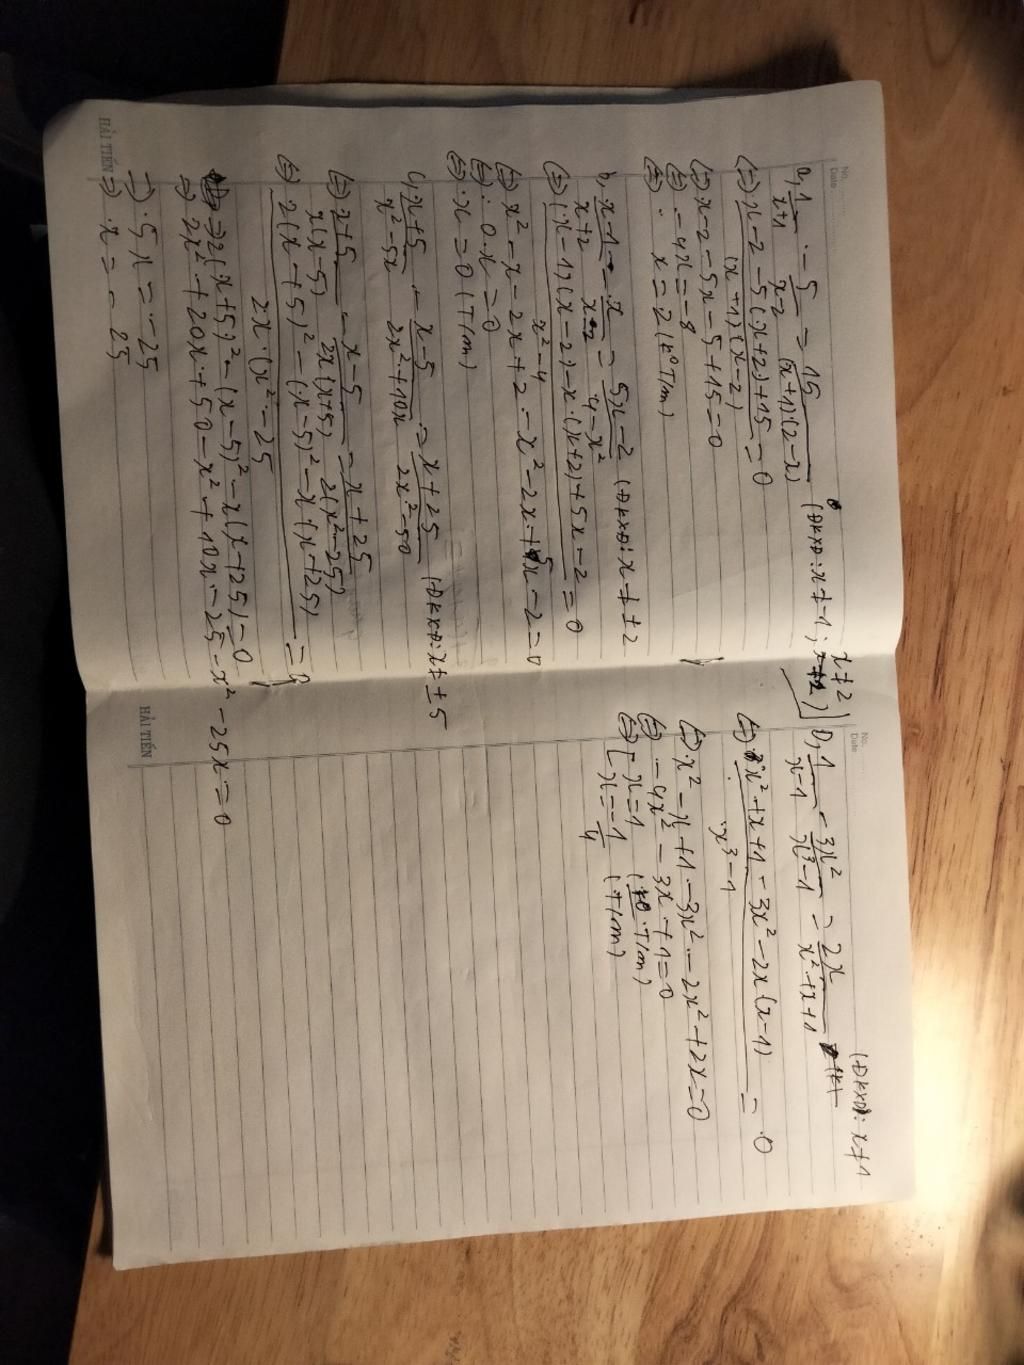 No.
Date
a, 1/(x+1) - 5/(x-2) = 15/((x+1)(2-x)) (ĐKXĐ: x ≠ -1; x ≠ 2)
⇔ x-2-5(x+2)+15/((x+1)(x-2)) = 0
⇔ x-2-5x-5+15=0
⇔ -4x=-8
⇔ x=2 (koT/m)
b, (x-1)/(x+2) - x/(x-2) = (5x-2)/(4-x²) (ĐKXĐ: x ≠ ±2
⇔ ((x-1)(x-2)-x(x+2)+5x-2)/(x²-4) = 0
⇔ x²-x-2x+2-x²-2x+5x-2=0
⇔ 0x=0
⇔ x=0 (T/m)
c, (x+5)/(x²-5x) - (x-5)/(2x²+10x) = (x+25)/(2x²-50) (ĐKXĐ: x ≠ ±5
⇔ (x+5)/(x(x-5)) - (x-5)/(2x(x+5)) = (x+25)/(2(x²-25))
⇔ (2(x+5)²-(x-5)²-x(x+25))/(2x(x²-25) = 0
⇒ 2(x+5)²-(x-5)²-x(x+25)=0
⇒ 2x²+20x+50-x²+10x-25-x²-25x=0
⇒ 5x=-25
⇒ x=-25
HẢI TIẾN
No.
Date
(ĐKXĐ: x ≠ 1
D, 1/(x-1) - 3x²/(x³-1) = 2x/(x²+x+1)
⇔ (x²+x+1-3x²-2x(x-1))/(x³-1) = 0
⇔ x²-x+1-3x²-2x²+2x=0
⇔ -4x²-3x+1=0
⇔ [ x=1 (ko T/m)
[ x=-1/4 (T/m)
HẢI TIẾN